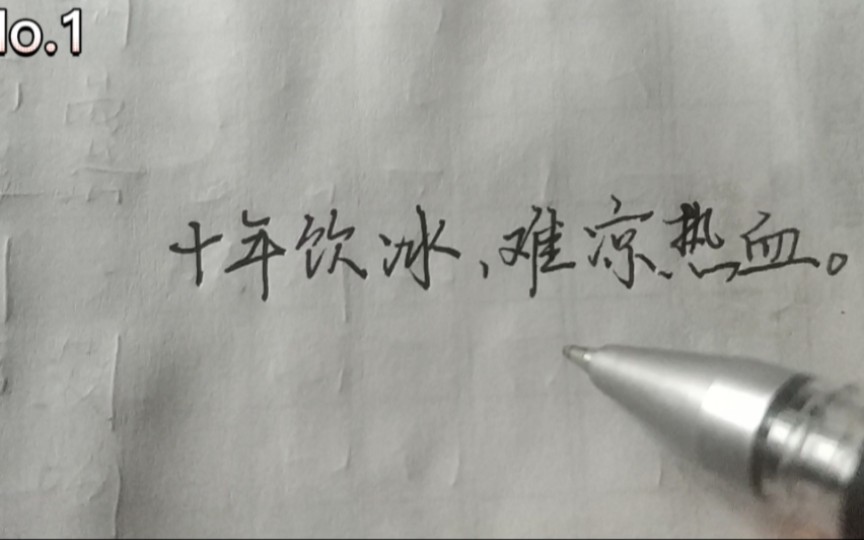 No.1
十年饮冰、难凉热血。